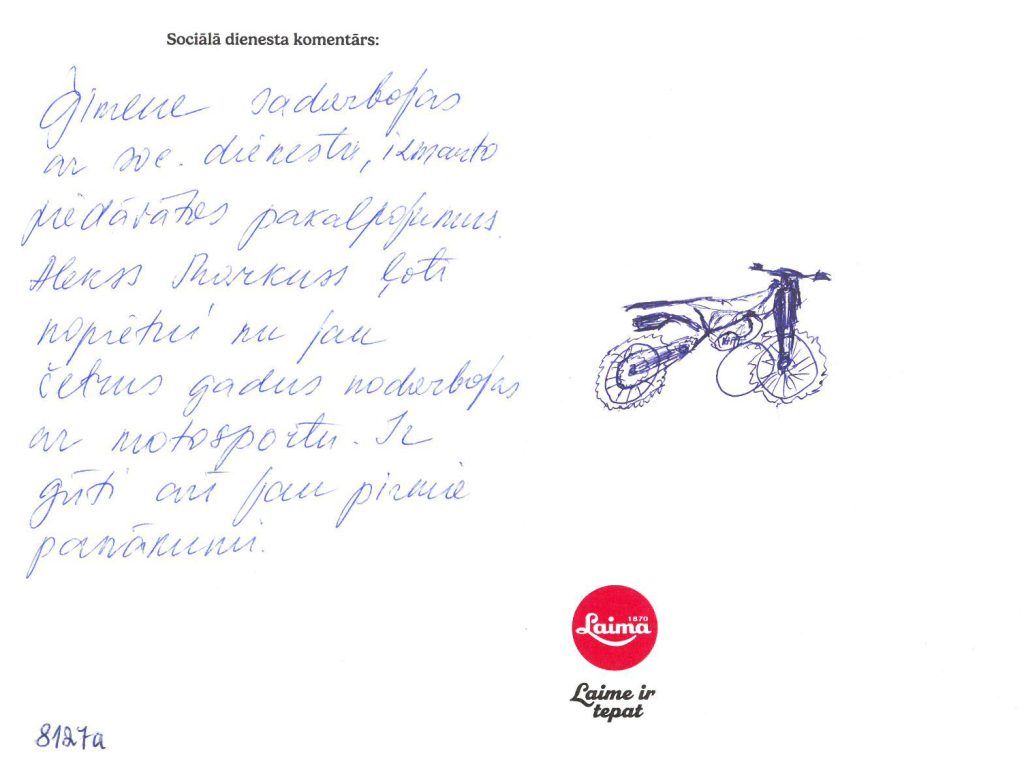 Sociālā dienesta komentārs:
Ģimene sadarbojas
ar soc. dienestu, izmanto
piedāvātos pakalpojumus.
Alekss Markuss ļoti
nopietni nu jau
četrus gadus nodarbojas
ar motosportu. Ir
gūti arī jau pirmie
panākumi.
1870
Laima
Laime ir
tepat
8127a